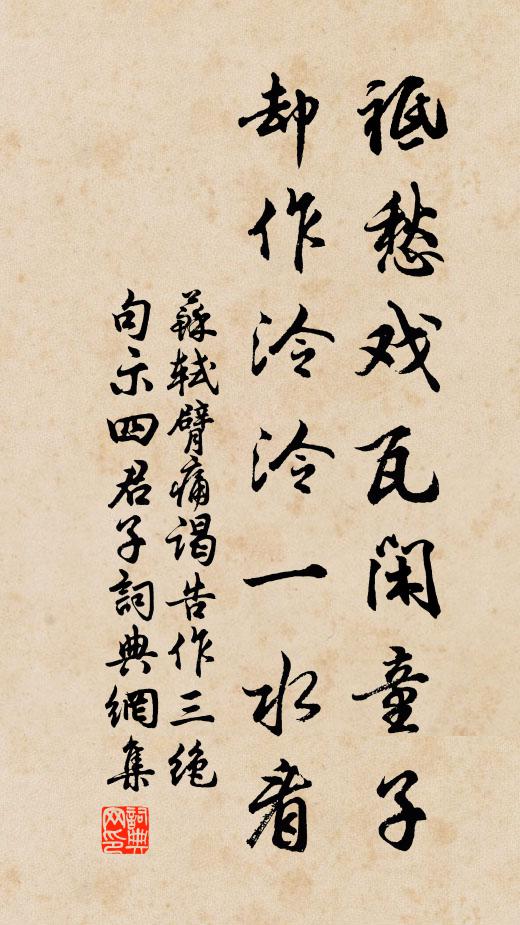 祗愁戏瓦闲童子
却作泠泠一水看
蘇轼臂痛谒告作三绝
句示四君子詞典網集
詞典网印